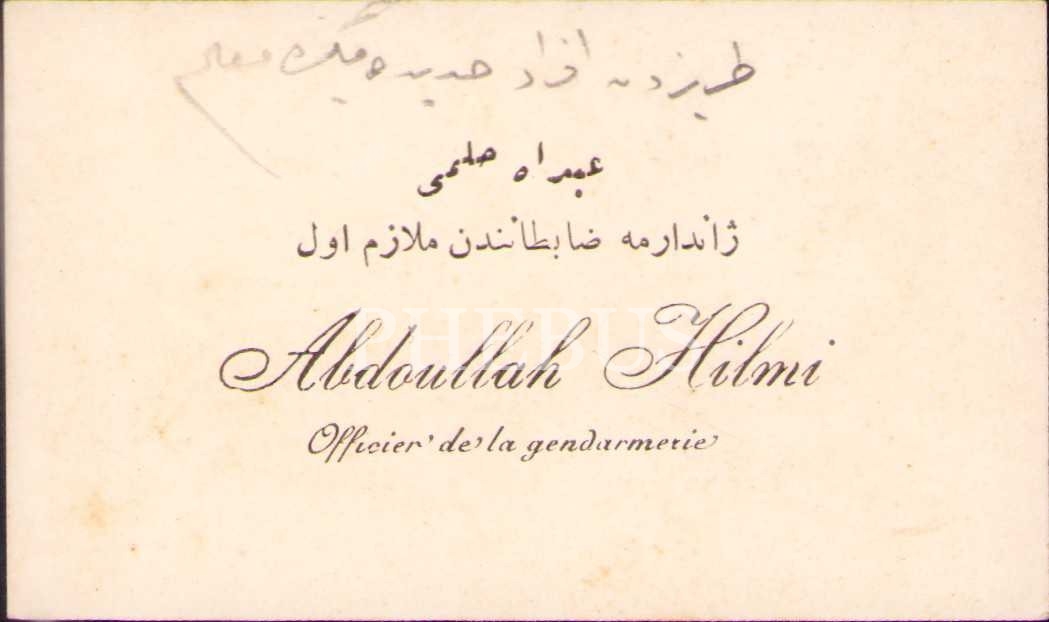 افراد جدیده
عبداه حلمی
ژاندارمه ضابطانندن ملازم اول
PHEBUS
Abdoullah Hilmi
Officier de la gendarmerie